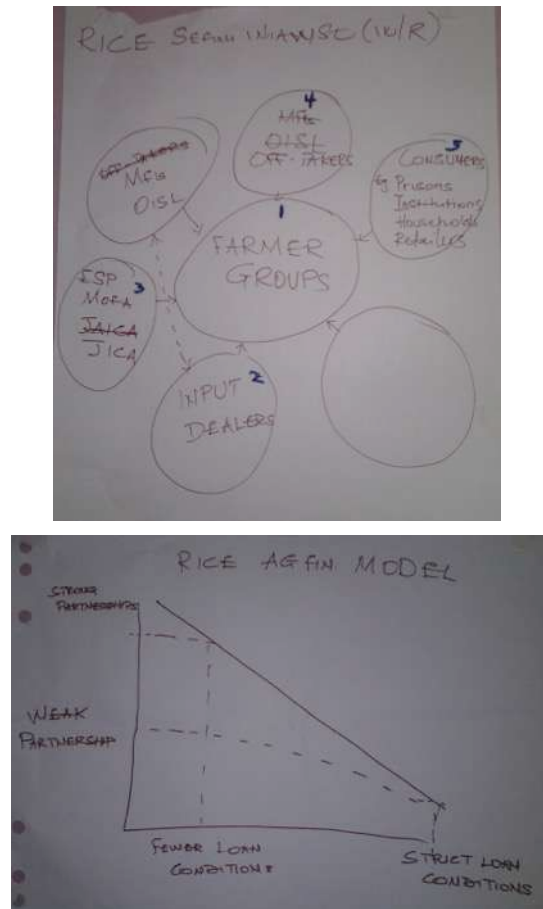 RICE
1
FARMER
GROUPS
MFIs
OISL
4
OISL
OFF-TAKERS
5
CONSUMERS
Eg Prisons
Institutions
Households
Retailers
3
MOFA
JAICA
JICA
INPUT 2
DEALERS
RICE AGFIN MODEL
STRONG
PARTNERSHIPS
WEAK
PARTNERSHIP
FEWER LOAN
CONDITIONS
STRICT LOAN
CONDITIONS